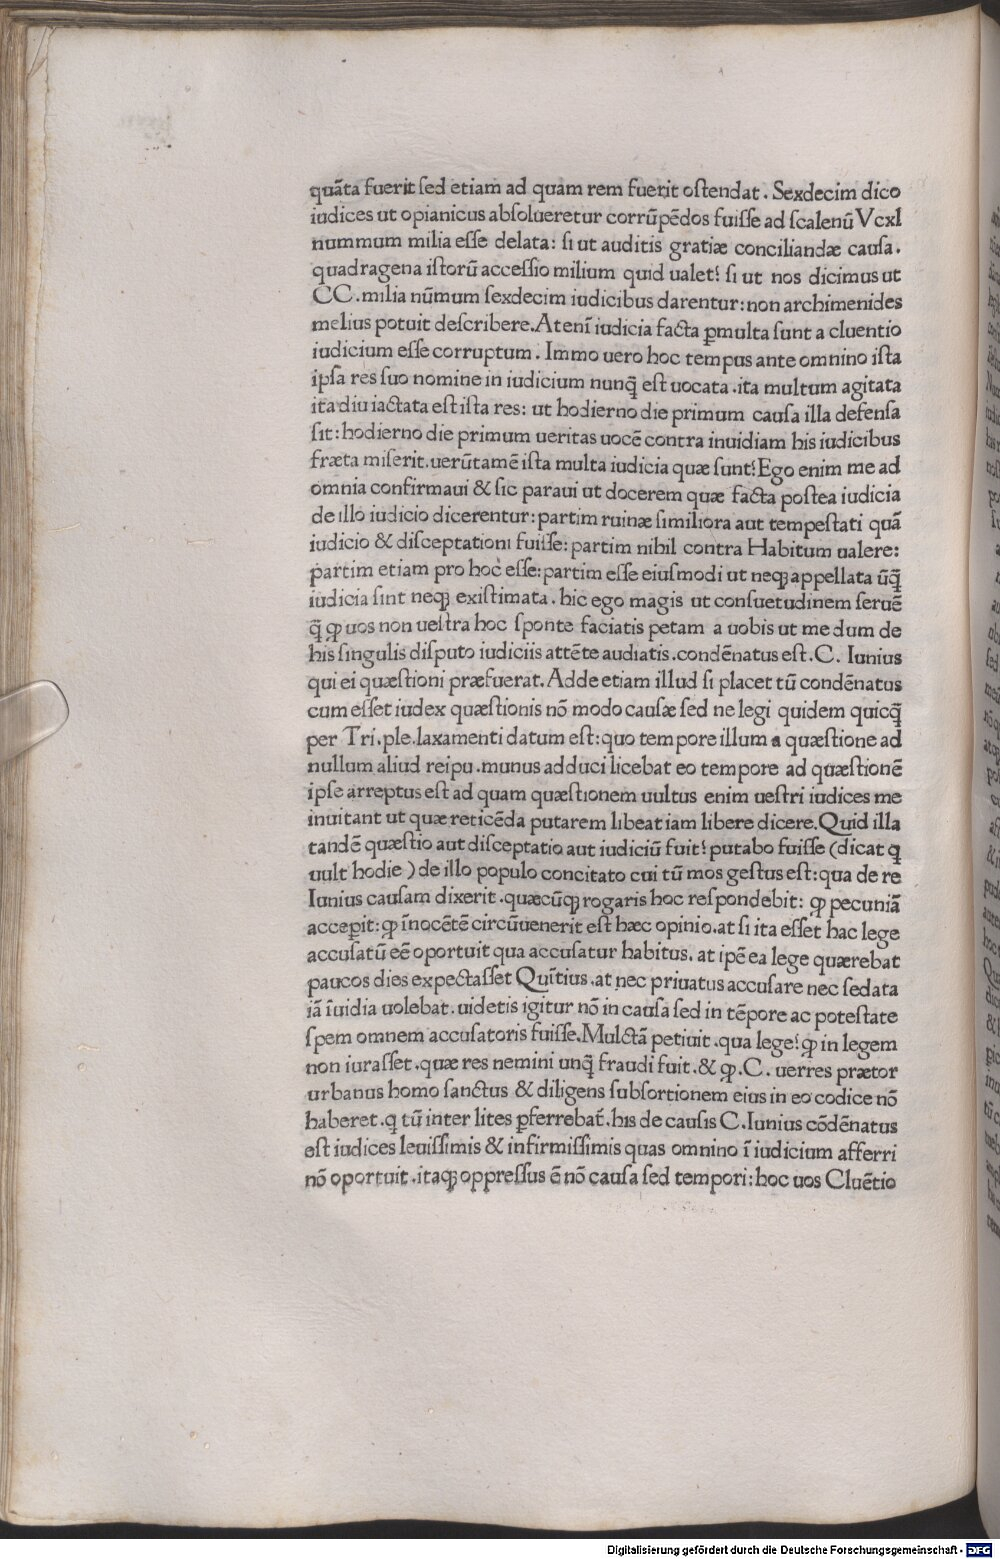 quãta fuerit ſed etiam ad quam rem fuerit oſtendat. Sexdecim dico
iudices ut opianicus abſolueretur corrũpẽdos fuiſſe ad ſcalenũ Vcxl
nummum milia eſſe delata: ſi ut auditis gratiæ conciliandæ cauſa.
quadragena iſtorũ acceſſio milium quid ualet? ſi ut nos dicimus ut
CC. milia nũmum ſexdecim iudicibus darentur: non archimenides
melius potuit deſcribere. At enĩ iudicia facta ꝑmulta ſunt a cluentio
iudicium eſſe corruptum. Immo uero hoc tempus ante omnino iſta
ipſa res ſuo nomine in iudicium nunq̃ eſt uocata. ita multum agitata
ita diu iactata eſt iſta res: ut hodierno die primum cauſa illa defenſa
ſit: hodierno die primum ueritas uocẽ contra inuidiam his iudicibus
fræta miſerit. uerũtamẽ iſta multa iudicia quæ ſunt? Ego enim me ad
omnia confirmaui & ſic paraui ut docerem quæ facta poſtea iudicia
de illo iudicio dicerentur: partim ruinæ ſimiliora aut tempeſtati quã
iudicio & diſceptationi fuiſſe: partim nihil contra Habitum ualere:
partim etiam pro hoc eſſe: partim eſſe eiuſmodi ut neqꝫ appellata ũq̃
iudicia ſint neqꝫ exiſtimata. hic ego magis ut conſuetudinem ſeruẽ
q̃ ꝙ uos non ueſtra hoc ſponte faciatis petam a uobis ut me dum de
his ſingulis diſputo iudiciis attẽte audiatis. condẽnatus eſt. C. Iunius
qui ei quæſtioni præfuerat. Adde etiam illud ſi placet tũ condẽnatus
cum eſſet iudex quæſtionis nõ modo cauſæ ſed ne legi quidem quicq̃
per Tri. ple. laxamenti datum eſt: quo tempore illum a quæſtione ad
nullum aliud reipu. munus adduci licebat eo tempore ad quæſtionẽ
ipſe arreptus eſt ad quam quæſtionem uultus enim ueſtri iudices me
inuitant ut quæ reticẽda putarem libeat iam libere dicere. Quid illa
tandẽ quæſtio aut diſceptatio aut iudiciũ fuit? putabo fuiſſe (dicat ꝗ
uult hodie ) de illo populo concitato cui tũ mos geſtus eſt: qua de re
Iunius cauſam dixerit. quæcũqꝫ rogaris hoc reſpondebit: ꝙ pecuniã
acceꝑit: ꝙ ĩnocẽtẽ circũuenerit eſt hæc opinio. at ſi ita eſſet hac lege
accuſatũ eẽ oportuit qua accuſatur habitus. at ipẽ ea lege quærebat
paucos dies expectaſſet Quĩtius. at nec priuatus accuſare nec ſedata
iã ĩuidia uolebat. uidetis igitur nõ in cauſa ſed in tẽpore ac poteſtate
ſpem omnem accuſatoris fuiſſe. Mulctã petiuit. qua lege? ꝙ in legem
non iuraſſet. quæ res nemini unq̃ fraudi fuit. & ꝙ. C. uerres prætor
urbanus homo ſanctus & diligens ſubſortionem eius in eo codice nõ
haberet. ꝗ tũ inter lites ꝑferrebat̃. his de cauſis C. Iunius cõdẽnatus
eſt iudices leuiſſimis & infirmiſſimis quas omnino ĩ iudicium afferri
nõ oportuit. itaqꝫ oppreſſus ẽ nõ cauſa ſed tempori: hoc uos Cluẽtio
Digitalisierung gefördert durch die Deutsche Forschungsgemeinschaft - DFG